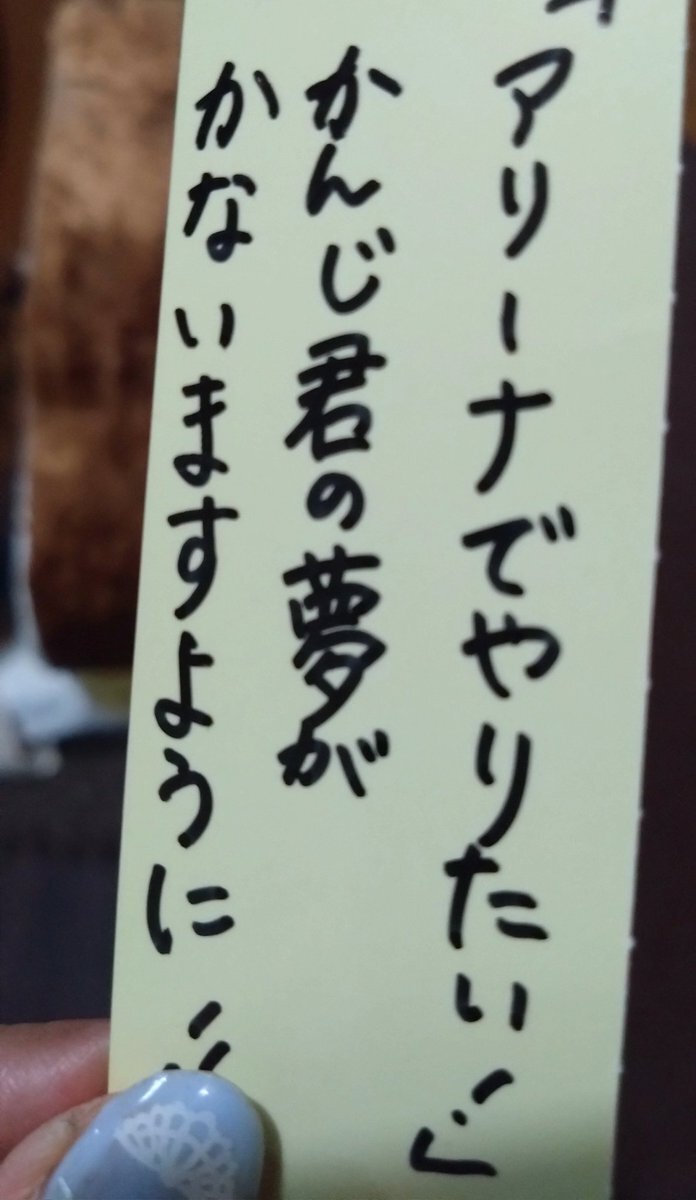 「アリーナでやりたい！」
かんじ君の夢が
かないますように！！